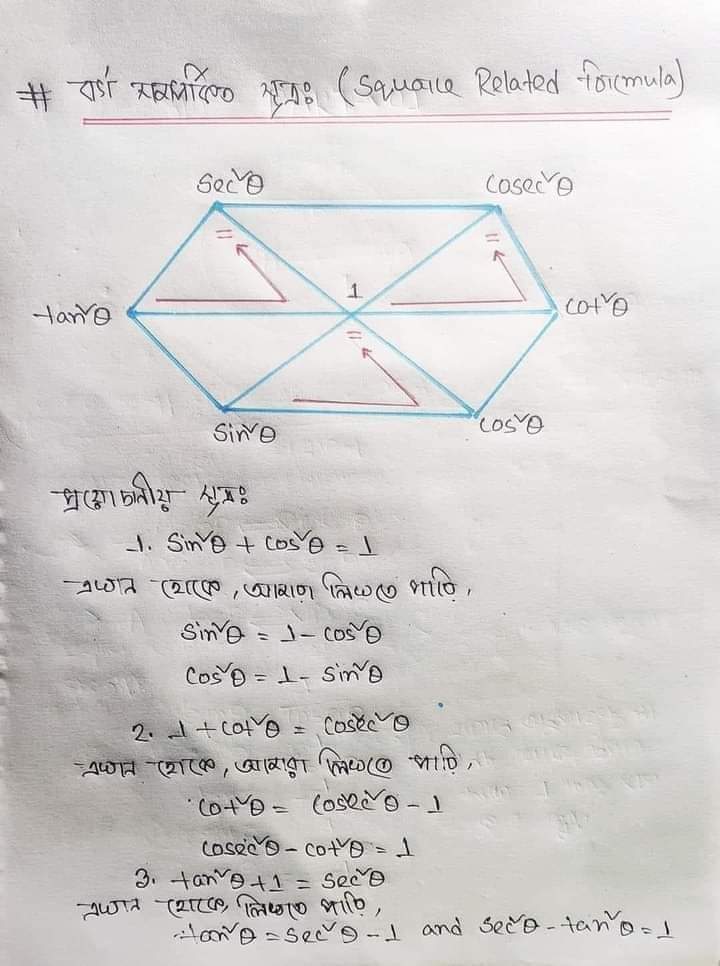 # বর্গ সম্পর্কিত সূত্রঃ (Square Related formula)
sec²θ
cosec²θ
=
=
1
tan²θ
cot²θ
=
sin²θ
cos²θ
প্রয়োজনীয় সূত্রঃ
1. sin²θ + cos²θ = 1
এখান থেকে, আমরা লিখতে পারি,
sin²θ = 1 - cos²θ
cos²θ = 1 - sin²θ
2. 1 + cot²θ = cosec²θ
এখান থেকে, আমরা লিখতে পারি,
cot²θ = cosec²θ - 1
cosec²θ - cot²θ = 1
3. tan²θ + 1 = sec²θ
এখান থেকে, লিখতে পারি,
tan²θ = sec²θ - 1 and sec²θ - tan²θ = 1